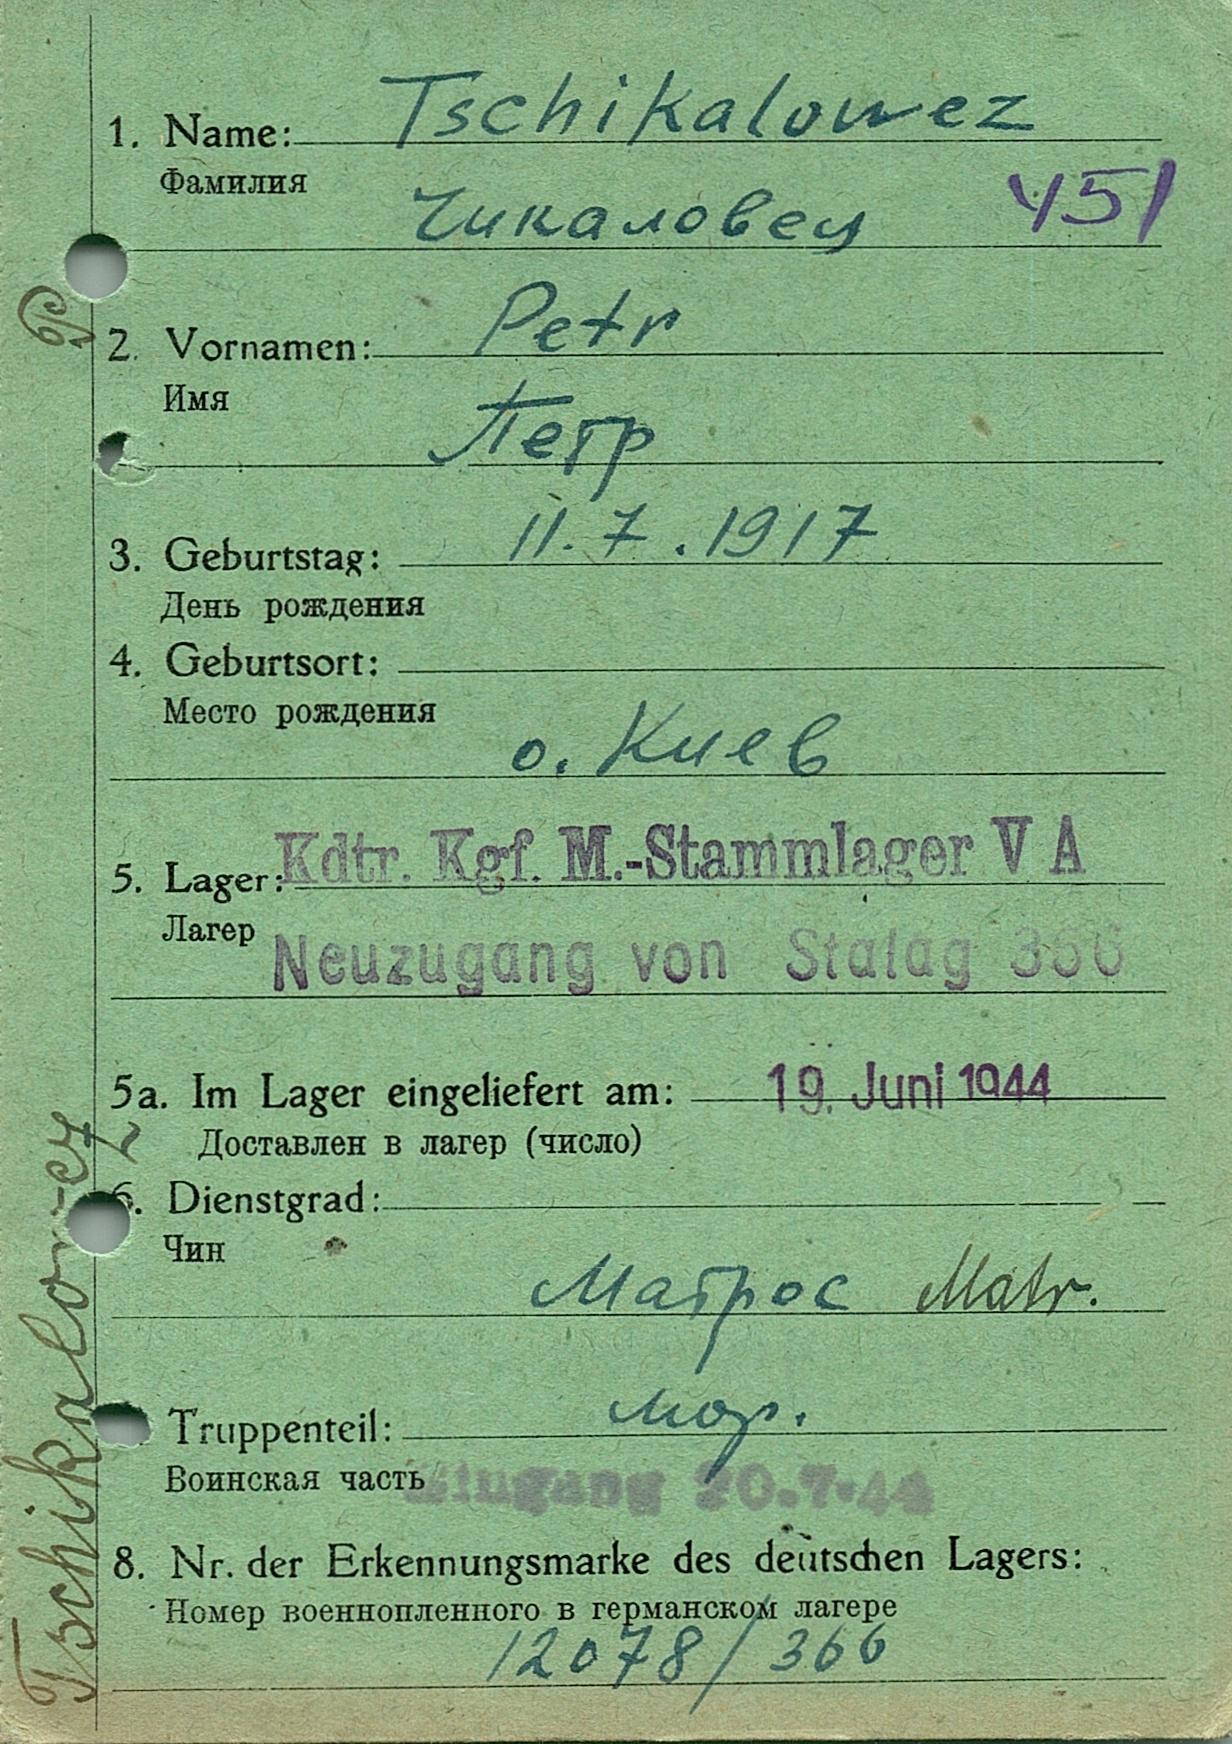 1. Name: Tschikalowez
Фамилия
Чикаловец
451
2. Vornamen: Petr
Имя
Петр
3. Geburtstag: 11.7.1917
День рождения
4. Geburtsort:
Место рождения
о. Киев
5. Lager: Kdtr. Kgf. M.-Stammlager V A
Лагер
Neuzugang von Stalag 366
5a. Im Lager eingeliefert am: 19. Juni 1944
Доставлен в лагер (число)
6. Dienstgrad:
Чин
Матрос Matr.
Truppenteil: мор.
Воинская часть
Eingang 20.7.44
8. Nr. der Erkennungsmarke des deutschen Lagers:
Номер военнопленного в германском лагере
12078/366
Tschikalowez